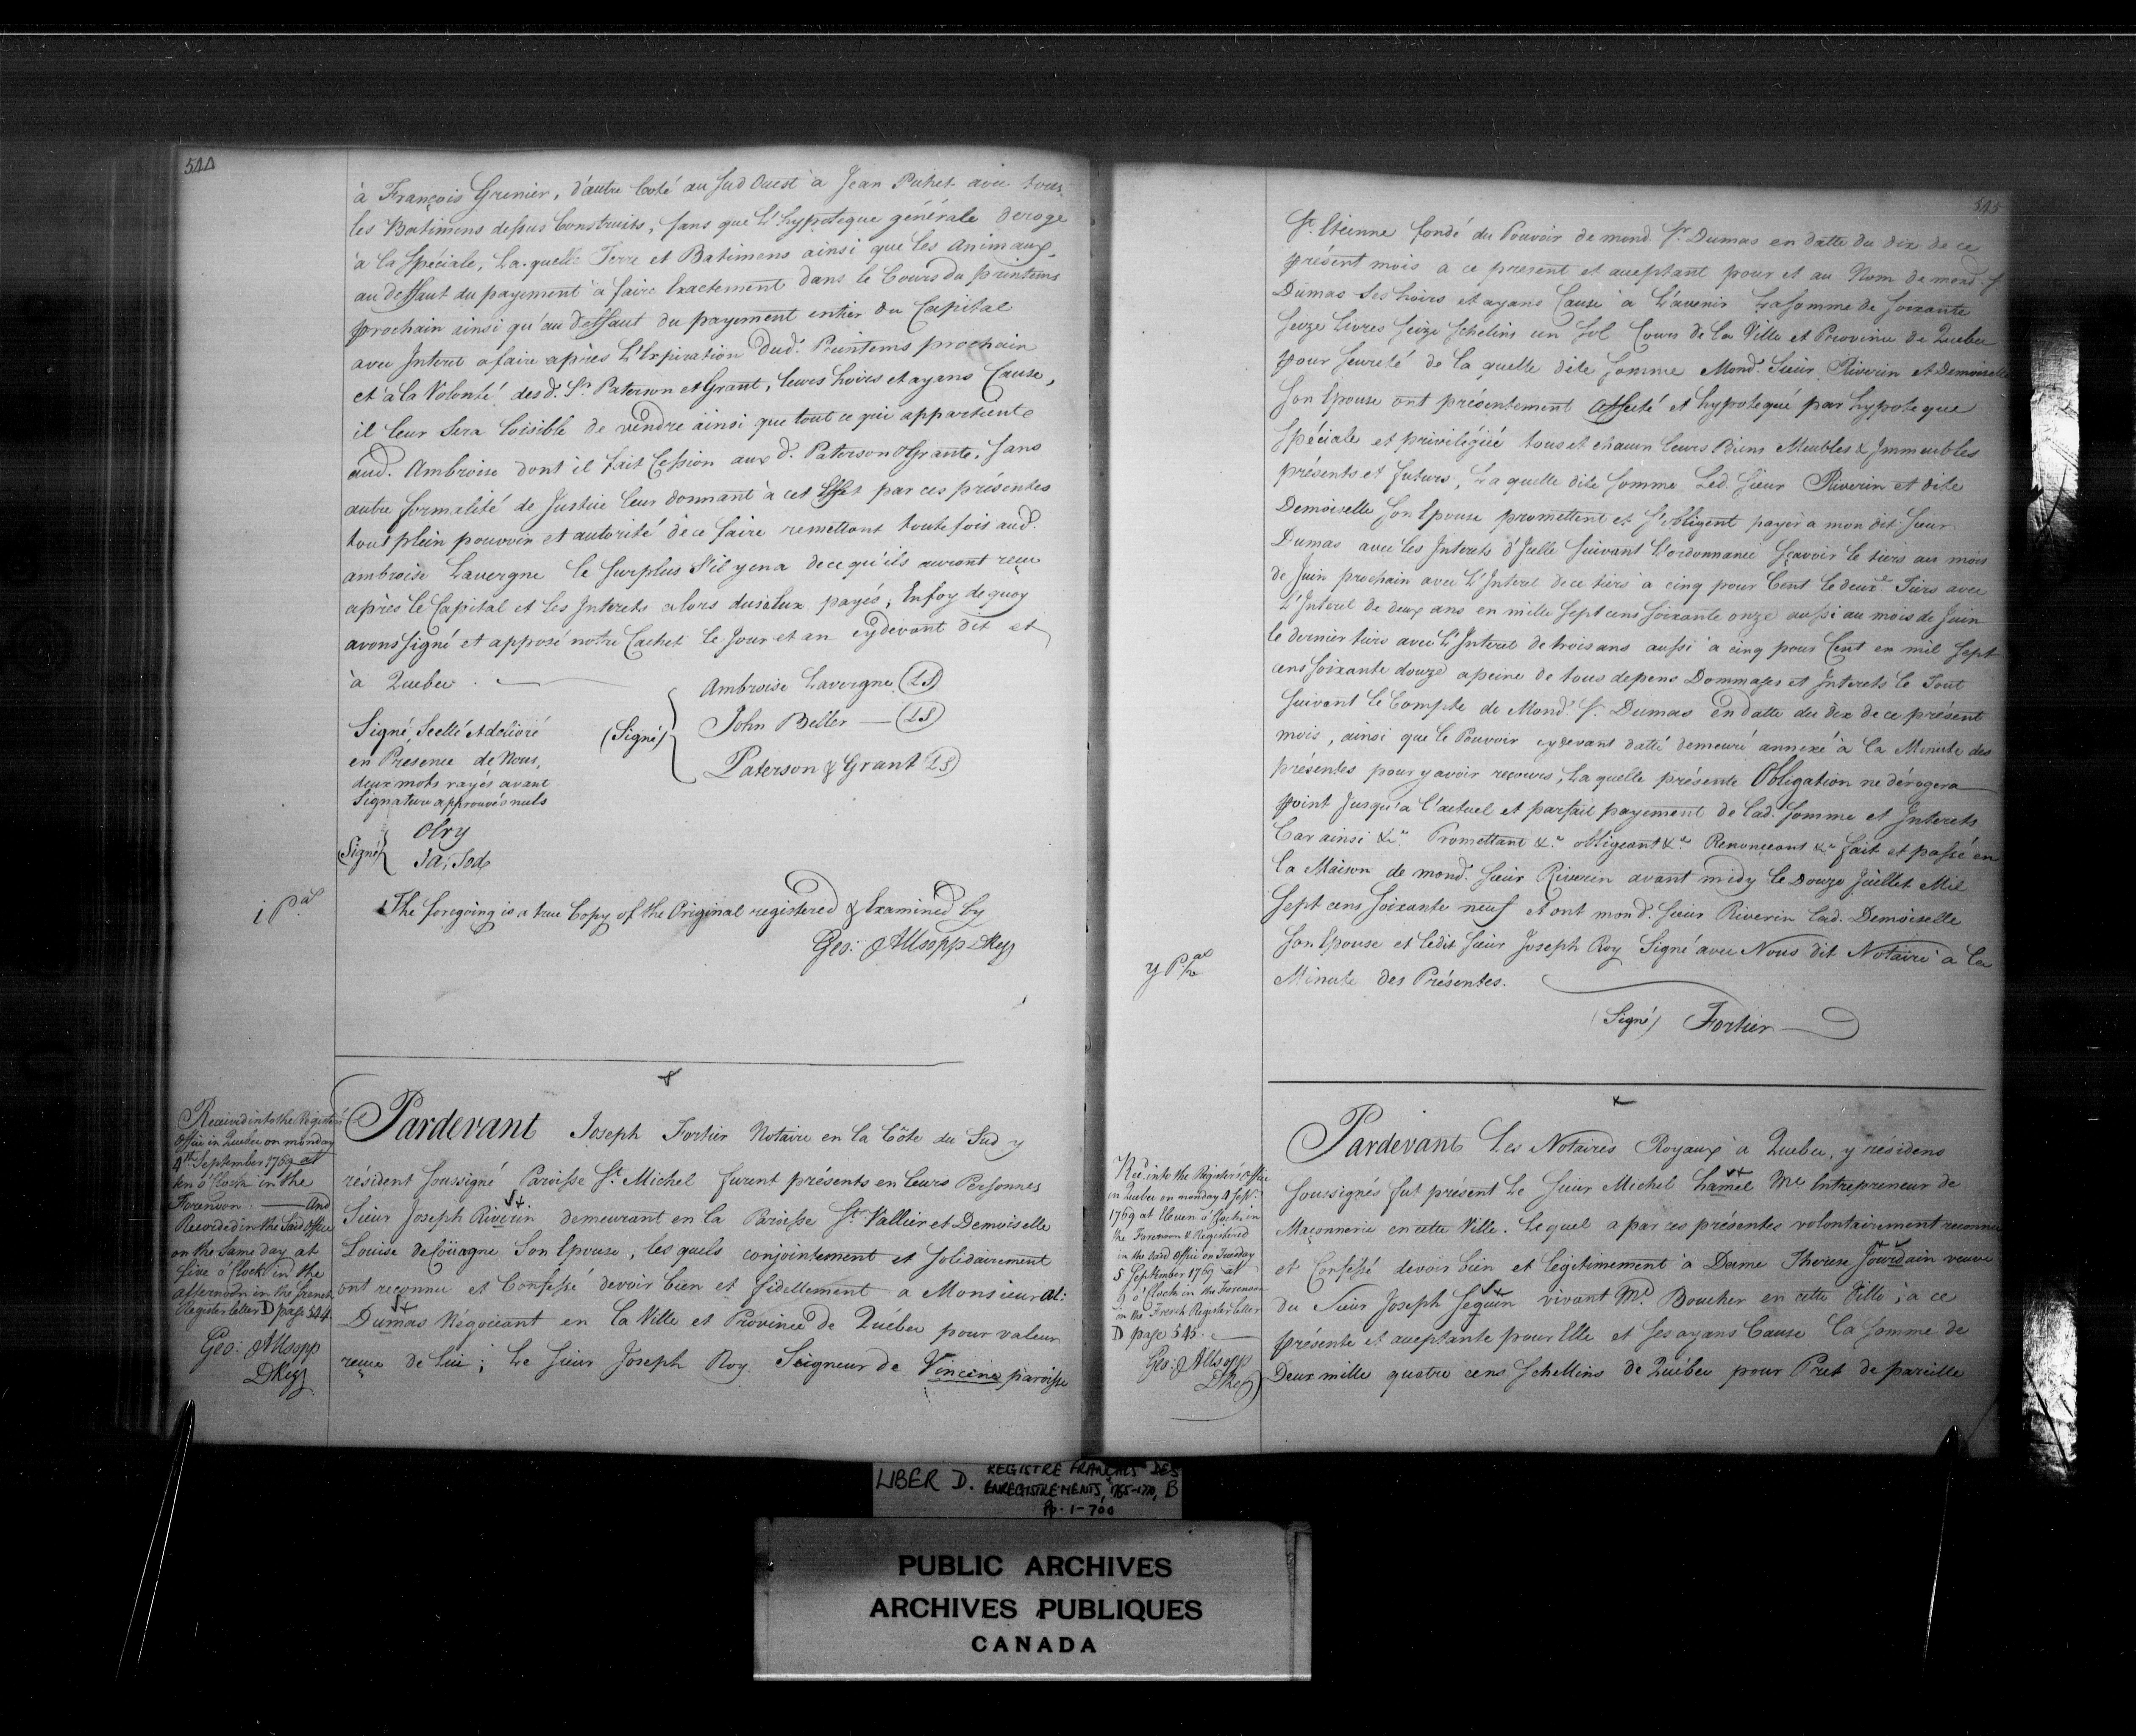 544
à François Grenier, d'autre Coté au Sud Ouest à Jean Pichet avec tous
les Batimens dessus Construits, sans que L'hypoteque générale deroge
à la Spéciale, La quelle Terre et Batimens ainsi que les animaux,
au deffaut du payement à faire Exactement dans le Cours du printems
prochain ainsi qu'au deffaut du payement entier du Capital
avec Interet a faire après L'Expiration dud. Printems prochain
et à la Volonté des d. Srs Paterson et Grant, leurs hoirs et ayans Cause,
il leur Sera loisible de vendre ainsi que tout ce qui appartient
aud. Ambroise dont il fait Cession aux d. Paterson & Grant, sans
autre formalité de Justice leur donnant à cet Effet par ces présentes
tout plein pouvoir et autorité de ce faire remettant toutefois aud.
ambroise Lavergne le surplus s'il y en a de ce qu'ils auront reçu
après le Capital et les Interets alors dus à Eux payés; En foy de quoy
avons signé et apposé notre Cachet le Jour et an cydevant dit et
à Quebec.
Signé, Scellé et delivré
en Presence de Nous,
deux mots rayés avant
Signature approuvés nuls
(Signé)
Olry
(Signé)
Ambroise Lavergne (LS)
John Beller — (LS)
Paterson & Grant (LS)
The foregoing is a true Copy of the Original registered & Examined by
Geo: Allsopp DReg
Received into the Registers
Office in Quebec on monday
4th September 1769 at
ten o'Clock in the
Forenoon. — And
Recorded in the Said Office
on the Same day at
five o'Clock in the
afternoon in the french
Register letter D page 544
Geo: Allsopp
DReg
Pardevant Joseph Fortier Notaire en la Côte du Sud y
résident soussigné Paroisse St. Michel furent présents en leurs Personnes
Sieur Joseph Riverin demeurant en la Paroisse St. Vallier et Demoiselle
Louise deSoüagne Son Epouse, les quels conjointement et solidairement
ont reconnu et Confessé devoir bien et fidellement a Monsieur al:
Dumas Négociant en la Ville et Province de Québec pour valeur
reçue de lui; Le Sieur Joseph Roy. Seigneur de Vincene paroisse
545
St. Etienne fondé du Pouvoir de mond. Sr. Dumas en datte du dix de ce
présent mois a ce present et acceptant pour et au Nom de mond. S
Dumas Ses hoirs et ayans Cause à L'avenir La somme de soixante
seize Livres seize schelins un sol Cours de la Ville et Province de Quebec
pour seureté de la quelle dite somme Mond. Sieur Riverin et Demoiselle
Son Epouse ont présentement affecté et hypotequé par hypoteque
Spéciale et privilégiée tous et chacun leurs Biens Meubles & Immeubles
présents et futurs, La quelle dite somme Led. Sieur Riverin et dite
Demoiselle Son Epouse promettent et s'obligent payer a mon dit Sieur
Dumas avec les Interets d'Icelle suivant L'ordonnance Sçavoir le tiers au mois
de Juin prochain avec L'Interet de ce tiers à cinq pour Cent le deuxe. Tiers avec
L'Interet de deux ans en mille sept cens soixante onze aussi au mois de Juin
le dernier tiers avec L'Interet de trois ans aussi à cinq pour Cent en mil sept
cens soixante douze a peine de tous depens Dommages et Interets le Tout
suivant le Compte de Mond. S. Dumas en datte du dix de ce présent
mois, ainsi que le Pouvoir cydevant datté demeuré annexé à la Minute des
présentes pour y avoir recours, La quelle présente Obligation ne dérogera
point Jusqu'à l'actuel et parfait payement de lad. somme et Interets
Car ainsi &a. Promettant &a. obligeant &a. Renonçant &a. fait et passé en
la Maison de mond. Sieur Riverin avant midy le Douze Juillet Mil
Sept cens soixante neuf et ont mond. Sieur Riverin lad. Demoiselle
Son Epouse et ledit Sieur Joseph Roy Signé avec Nous dit Notaire à la
Minute des Présentes.
(Signé) Fortier
Recd. into the Register's Office
in Quebec on monday 4 Sepr.
1769 at Eleven o'Clock in
the Forenoon & Registered
in the said Office on Tuesday
5 September 1769 at
9 o'Clock in the Forenoon
in the French Register letter
D page 545.
Geo: Allsopp
DReg
Pardevant Les Notaires Royaux à Quebec, y résidens
soussignés fut présent Le Sieur Michel hamel Me. Entrepreneur de
Maçonnerie en cette Ville. Lequel a par ces présentes volontairement reconnu
et Confessé devoir bien et légitimement à Dame Therese Jourdain veuve
du Sieur Joseph Seguin vivant Md. Boucher en cette Ville; à ce
présente et acceptante pour Elle et ses ayans Cause la somme de
Deux mille quatre cens schellins de Québec pour Pret de pareille
LIBER D. REGISTRE FRANÇAIS DES
ENREGISTREMENTS, 1765-1770, B
Pp. 1-700
PUBLIC ARCHIVES
ARCHIVES PUBLIQUES
CANADA